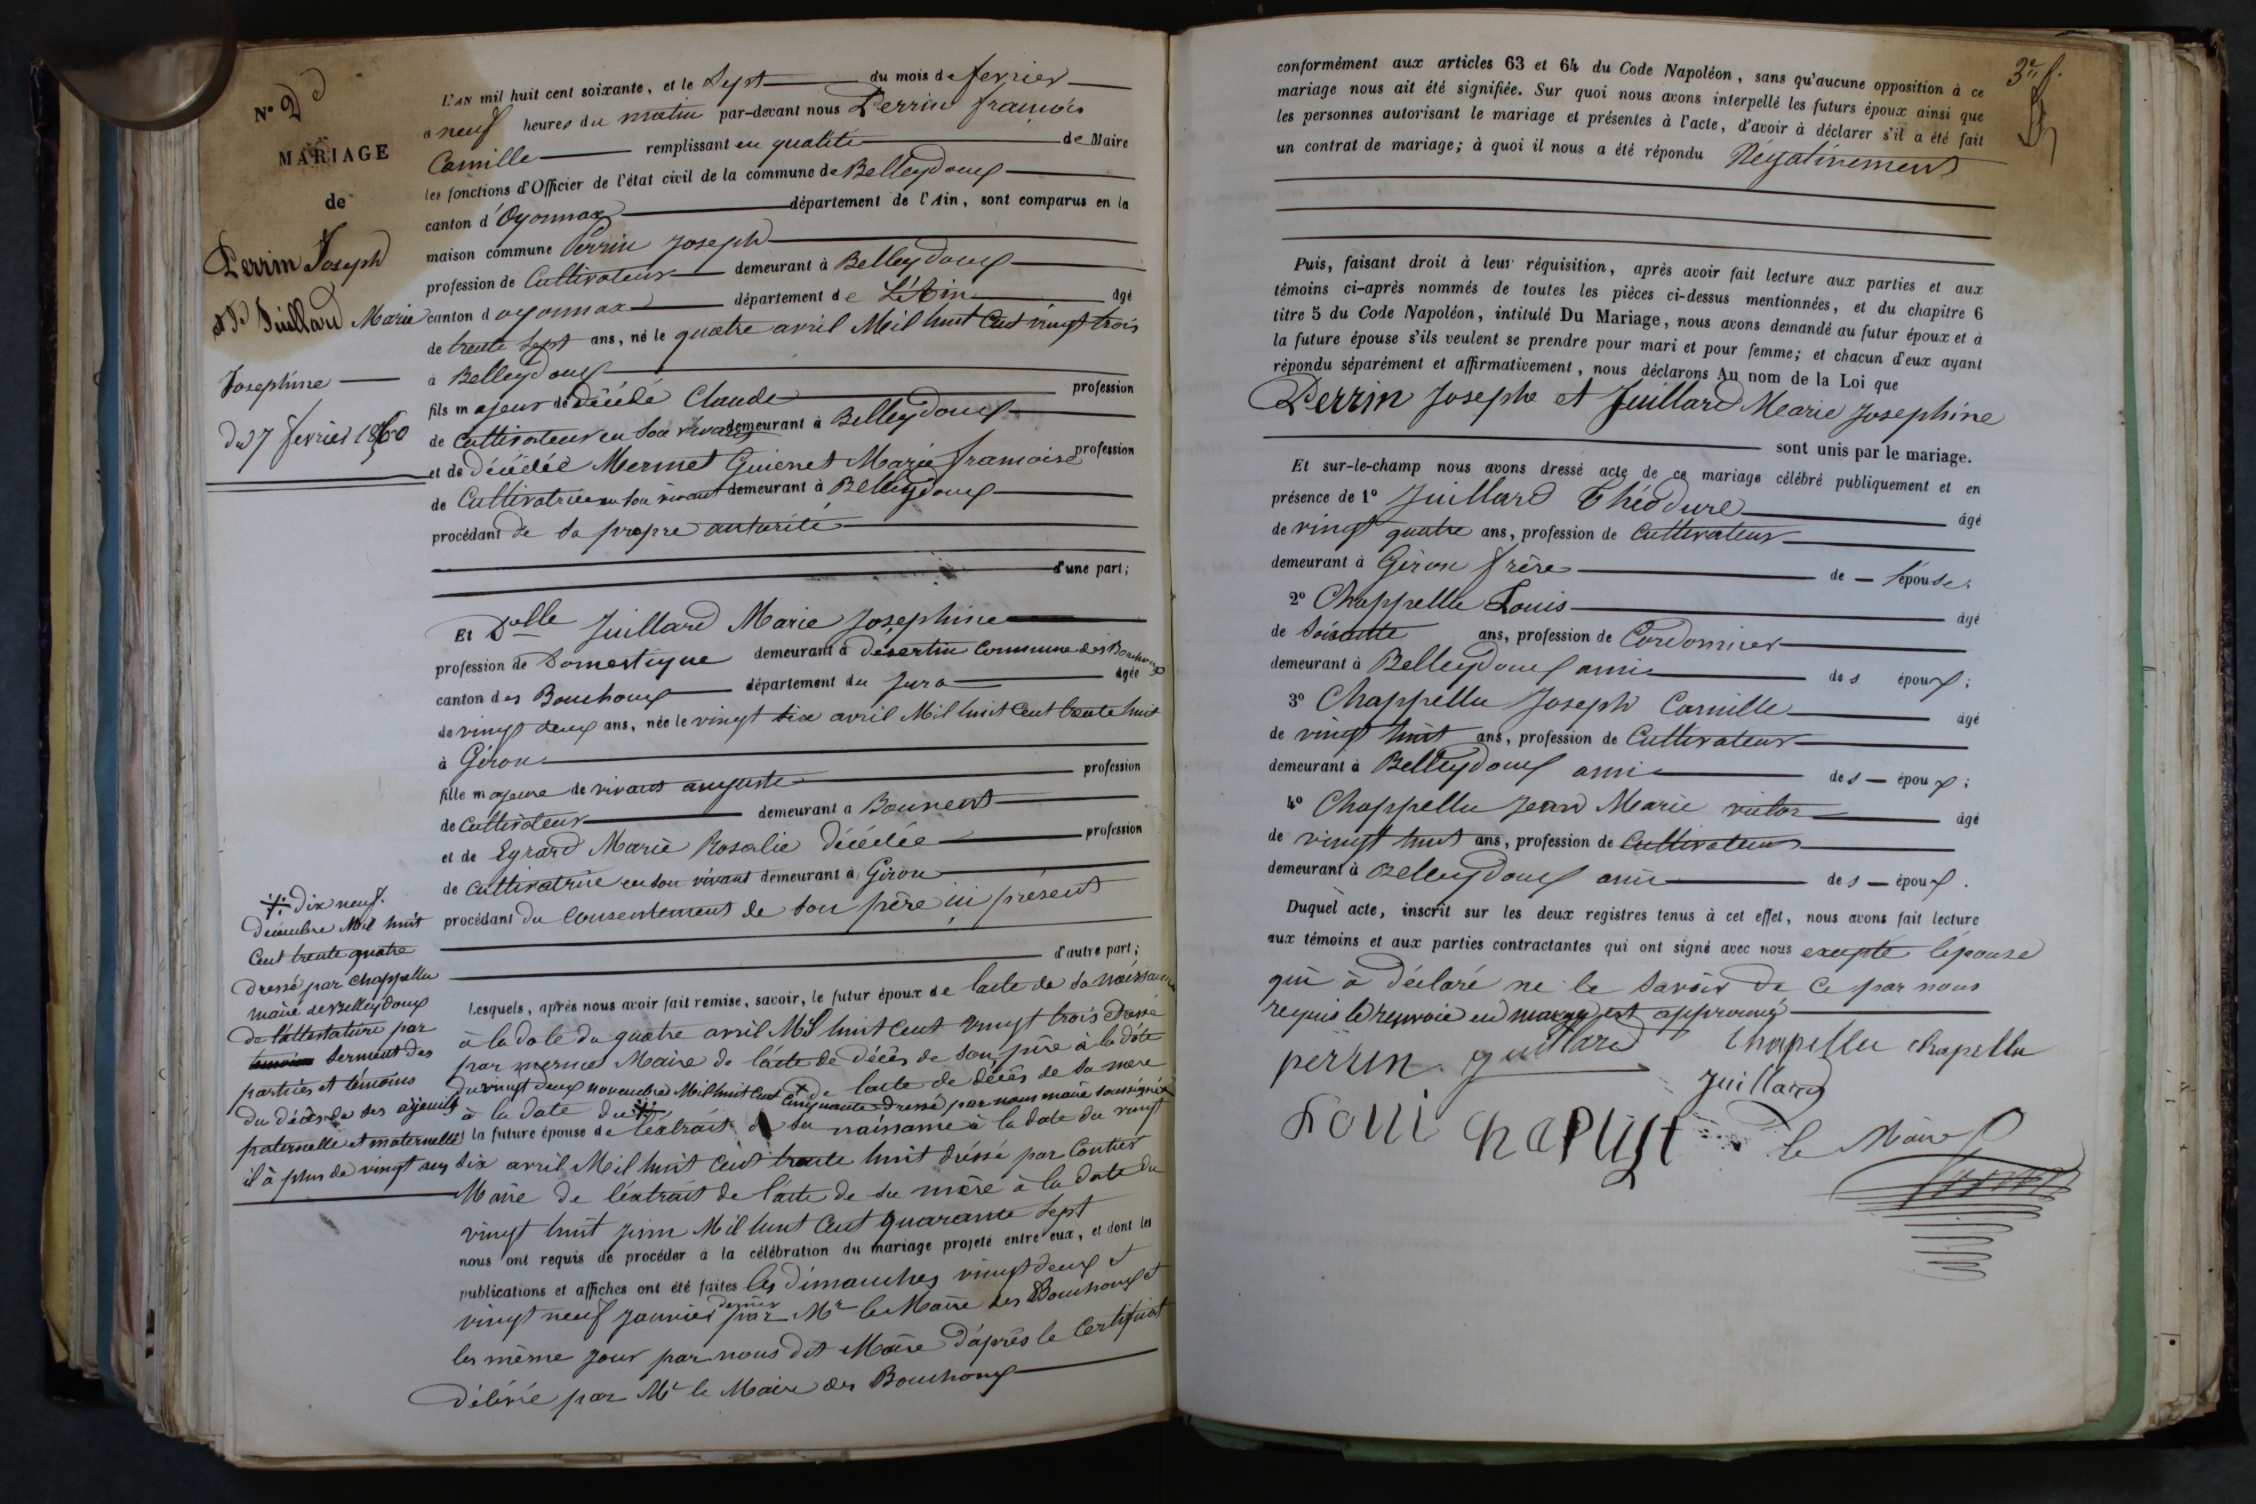 N° 2
MARIAGE
de
Perrin Joseph
et De Juillard Marie
Josephine
Du 7 fevrier 1860
L'AN mil huit cent soixante, et le Sept du mois de fevrier
à neuf heures du matin par-devant nous Perrin françois
Camille remplissant en qualité de Maire
les fonctions d'Officier de l'état civil de la commune de Belleydoux
canton d'Oyonnax département de l'Ain, sont comparus en la
maison commune Perrin Joseph
profession de Cultivateur demeurant à Belleydoux
canton d oyonnax département de L'Ain âgé
de trente Sept ans, né le quatre avril Mil huit Cent vingt trois
à Belleydoux
fils majeur de décédé Claude profession
de Cultivateur en Son vivant demeurant à Belleydoux
et de décédée Mermet Guienet Marie françoise profession
de Cultivatrice en son vivant demeurant à Belleydoux
procédant de Sa propre autorité
d'une part;
Et Delle Juillard Marie Josephine
profession de Domestique demeurant à désertin Commune des Bouchoux
canton des Bouchoux département du Jura âgée
de vingt deux ans, née le vingt six avril Mil huit Cent trente huit
à Giron
fille majeure de vivant auguste profession
de Cultivateur demeurant à
et de Egrard Marie Rosalie décédée profession
de Cultivatrice en son vivant demeurant à Giron
procédant du Consentement de son père ici présent
d'autre part;
Lesquels, après nous avoir fait remise, savoir, le futur époux de l'acte de sa naissance
à la date du quatre avril Mil huit Cent vingt trois dressé
par mermet Maire de l'acte de décès de son père à la date
du vingt deux novembre Mil huit Cent Cinquante dressé par nous maire soussigné
de l'acte de décès de sa mère
à la date du
la future épouse de l'extrait de sa naissance à la date du vingt
six avril Mil huit Cent trente huit dréssé par Contier
Maire de l'éxtrait de l'acte de sa mère à la date du
vingt huit juin Mil huit Cent quarante Sept
nous ont requis de procéder à la célébration du mariage projeté entre eux, et dont les
publications et affiches ont été faites les dimanches vingt deux et
vingt neuf janvier dernier par Mr le Maire des Bouchoux et
les même jour par nous dit Maire d'aprés le Certificat
délivré par Mr le Maire des Bouchoux
dix neuf
décembre Mil huit
Cent trente quatre
dressé par Chappellu
maire de Belleydoux
de l'attestation par
Serment des
parties et témoins
du décès de ses ayeuls
paternelle et maternelle
il à plus de vingt ans
3e f.
conformément aux articles 63 et 64 du Code Napoléon, sans qu'aucune opposition à ce
mariage nous ait été signifiée. Sur quoi nous avons interpellé les futurs époux ainsi que
les personnes autorisant le mariage et présentes à l'acte, d'avoir à déclarer s'il a été fait
un contrat de mariage; à quoi il nous a été répondu Négativement
Puis, faisant droit à leur réquisition, après avoir fait lecture aux parties et aux
témoins ci-après nommés de toutes les pièces ci-dessus mentionnées, et du chapitre 6
titre 5 du Code Napoléon, intitulé Du Mariage, nous avons demandé au futur époux et à
la future épouse s'ils veulent se prendre pour mari et pour femme; et chacun d'eux ayant
répondu séparément et affirmativement, nous déclarons Au nom de la Loi que
Perrin Josephe et Juillard Marie Josephine
sont unis par le mariage.
Et sur-le-champ nous avons dressé acte de ce mariage célébré publiquement et en
présence de 1° Juillard Théodure âgé
de vingt quatre ans, profession de Cultivateur
demeurant à Giron frère de l'épouse;
2° Chappellu Louis âgé
de Soixante ans, profession de Cordonnier
demeurant à Belleydoux ami des époux;
3° Chappellu Joseph Camille âgé
de vingt huit ans, profession de Cultivateur
demeurant à Belleydoux ami des époux;
4° Chappellu Jean Marie victor âgé
de vingt huit ans, profession de Cultivateur
demeurant à Belleydoux ami des époux.
Duquel acte, inscrit sur les deux registres tenus à cet effet, nous avons fait lecture
aux témoins et aux parties contractantes qui ont signé avec nous excepté l'épouse
qui à déclaré ne le Savoir de Ce par nous
requis le renvoie en marge est approuvé
perrin juillard Chapellu Chapellu
Juillard
Le Maire